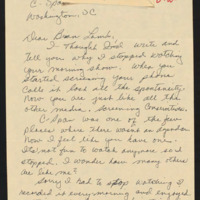 C-Span
Washington, DC
Dear Brian Lamb,
I thought I'd write and
tell you why I stopped watching
your morning show. When you
started screening your phone
calls is lost all the spontaneity.
Now you are just like all the
other media. Screening Conservative.
C-Span was one of the few
places where there was no agenda
Now I feel like you have one.
It's not fun to watch anymore so I
stopped. I wonder how many
are like me?
Sorry I had to stop watching I
recorded is every morning and enjoyed